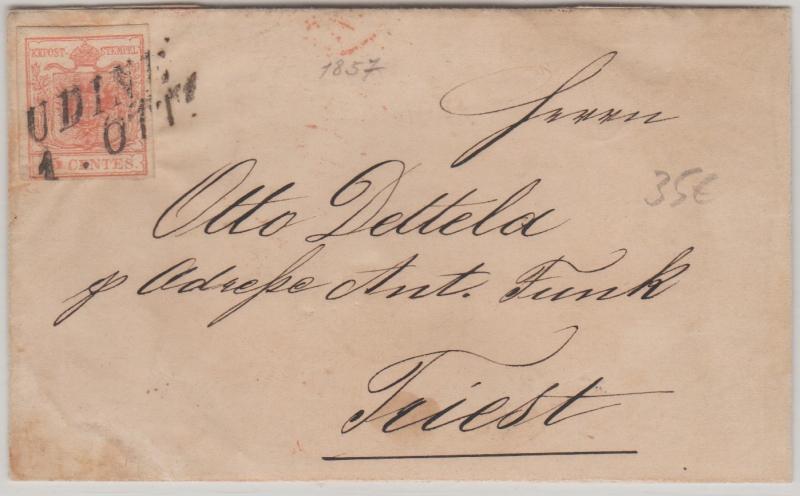 KKPOST-STEMPEL
UDINE
1. OTT.
CENTES.
1857
Herrn
35€
Otto Dettela
p Adreſse Ant. Funk
Triest